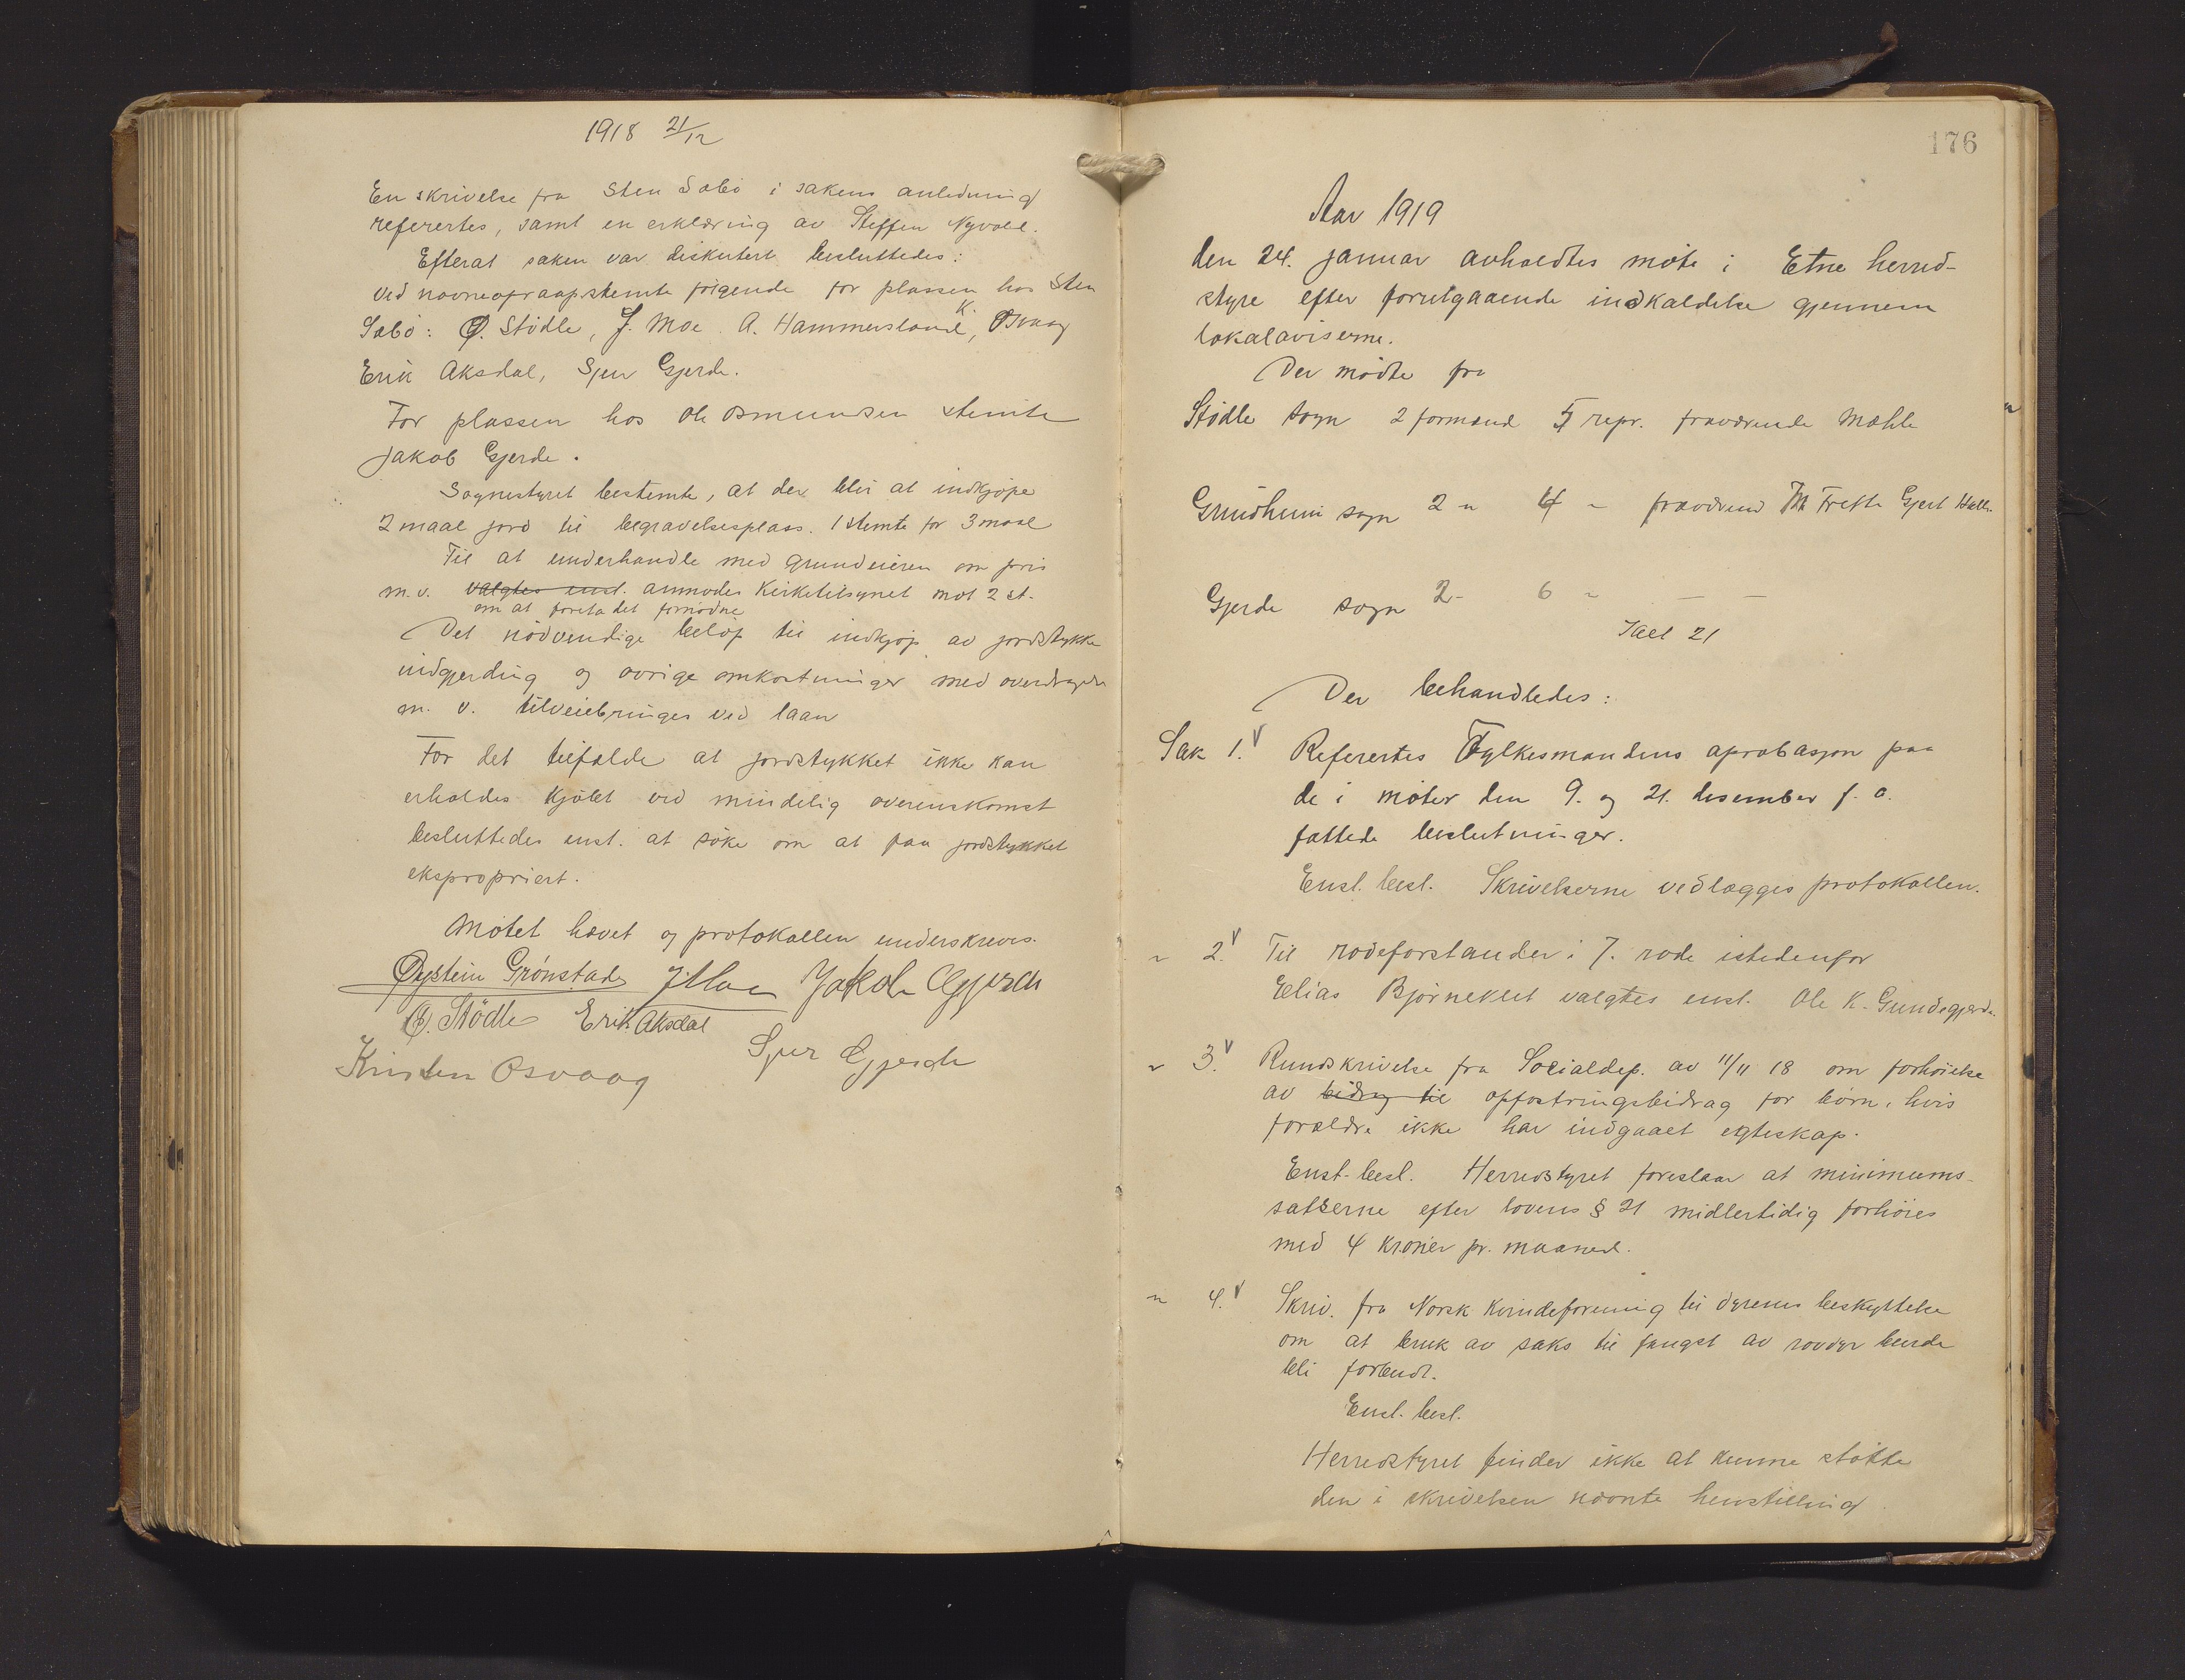 1918 21/12
En skrivelse fra Sten Sæbö i sakens anledning
referertes, samt en erklæring av Steffen Nyvold.
Efterat saken var diskutert besluttedes:
Ved navneopraap stemte fölgende for plassen hos Sten
Sæbö: Ö. Stödle, J. Moe. A. Hammersland, K. Osvaag
Erik Aksdal, Sjur Gjerde.
For plassen hos Ole Osmundsen stemte
Jakob Gjerde.
Sognestyret bestemte, at der blir at indkjöpe
2 maal jord til begravelsesplass. 1 stemte for 3 maal
Til at underhandle med grundeieren om pris
m.v. valgtes enst. anmodes Kirketilsynet mot 2 st.
om at foreta det fornödne
Det nödvendige belöp til indkjöp av jordstykke
indgjerding og övrige omkostninger med overdragelse
m. v. tilveiebringes ved laan
For det tilfælde at jordstykket ikke kan
erholdes kjöbt ved mindelig overenskomst
besluttedes enst. at söke om at faa jordstykket
ekspropriert.
Mötet hævet og protokollen underskreves.
Øystein Grönstad J. Moe Jakob Gjerde
Ö. Stödle Erik Aksdal
Sjur Gjerde
Kristen Osvaag
176
Aar 1919
den 24. januar avholdtes möte i Etne herred-
styre efter forutgaaende indkaldelse gjennem
lokalaviserne.
Der mödte fra
Stödle sogn 2 formænd 5 repr. fraværende Mæhle
Grindheim sogn 2 " 4 " fraværend Th Frette Gjert Halle
Gjerde sogn 2 - 6 " — —
Ialt 21
Der behandledes:
Sak 1. Referertes Fylkesmandens aprobasjon paa
de i möter den 9. og 21. desember f. a.
fattede beslutninger.
Enst. besl. Skrivelserne vedlægges protokollen.
" 2. Til rodeforstander i 7. rode istedenfor
Elias Björneklet valgtes enst. Ole K. Gundegjerde.
" 3. Rundskrivelse fra Socialdep. av 11/11 18 om forhöielse
av bidrag til opfostringsbidrag for börn, hvis
forældre ikke har indgaaet egteskap.
Enst. besl. Herredstyret foreslaar at minimums-
satserne efter lovens § 21 midlertidig forhöies
med 4 kroner pr. maaned.
" 4. Skriv. fra Norsk Kvindeforening til dyrenes beskyttelse
om at bruk av saks til fangst av rovdyr burde
bli forbudt.
Enst. besl.
Herredstyret finder ikke at kunne stötte
den i skrivelsen nævnte henstilling.